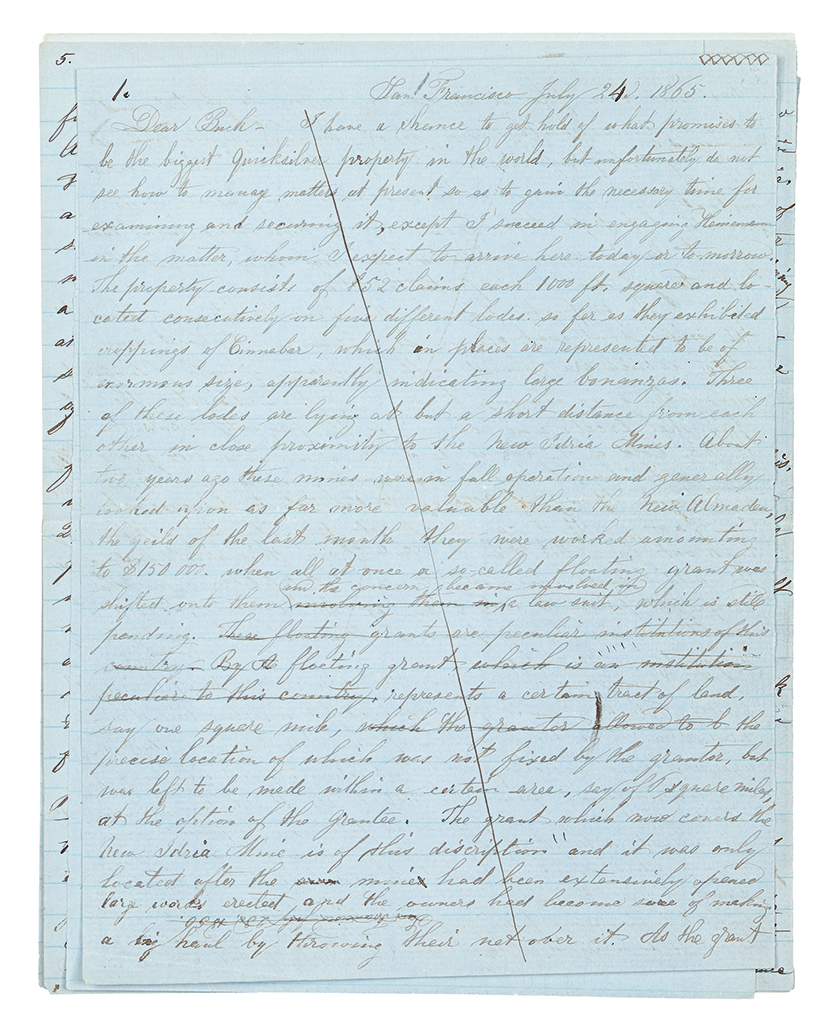 5.
1.
San Francisco July 24. 1865.
Dear Buck - I have a chance to get hold of what promises to
be the biggest Quicksilver property in the world, but unfortunately do not
see how to manage matters at present so as to gain the necessary time for
examining and securing it, except I succeed in engaging Heinemann
in the matter, whom I expect to arrive here today or to-morrow.
The property consists of 52 claims each 1000 ft. square and lo-
cated consecutively on five different lodes. so far as they exhibited
croppings of Cinnabar, which in places are represented to be of
enormous size, apparently indicating large bonanzas. Three
of these lodes are lying at but a short distance from each
other in close proximity to the New Idria Mines. About
two years ago these mines were in full operation and generally
looked upon as far more valuable than the New Almaden,
the yeild of the last month they were worked amounting
to $150 000. when all at once a so-called floating grant was
and the concern became involved in
shifted onto them involving them in a law suit, which is still
pending. These floating grants are peculiar institutions of this
country. By A floating grant which is an institution
peculiar to this country, represents a certain tract of land,
say one square mile, which the grantor allowed to b the
precise location of which was not fixed by the grantor, but
was left to be made within a certain area, say of square miles,
at the option of the grantee. The grant which now covers the
New Idria Mine is of this discription" and it was only
located after the mines had been extensively opened
large works erected and the owners had become sure of making
a big haul by throwing their net over it. As the grant